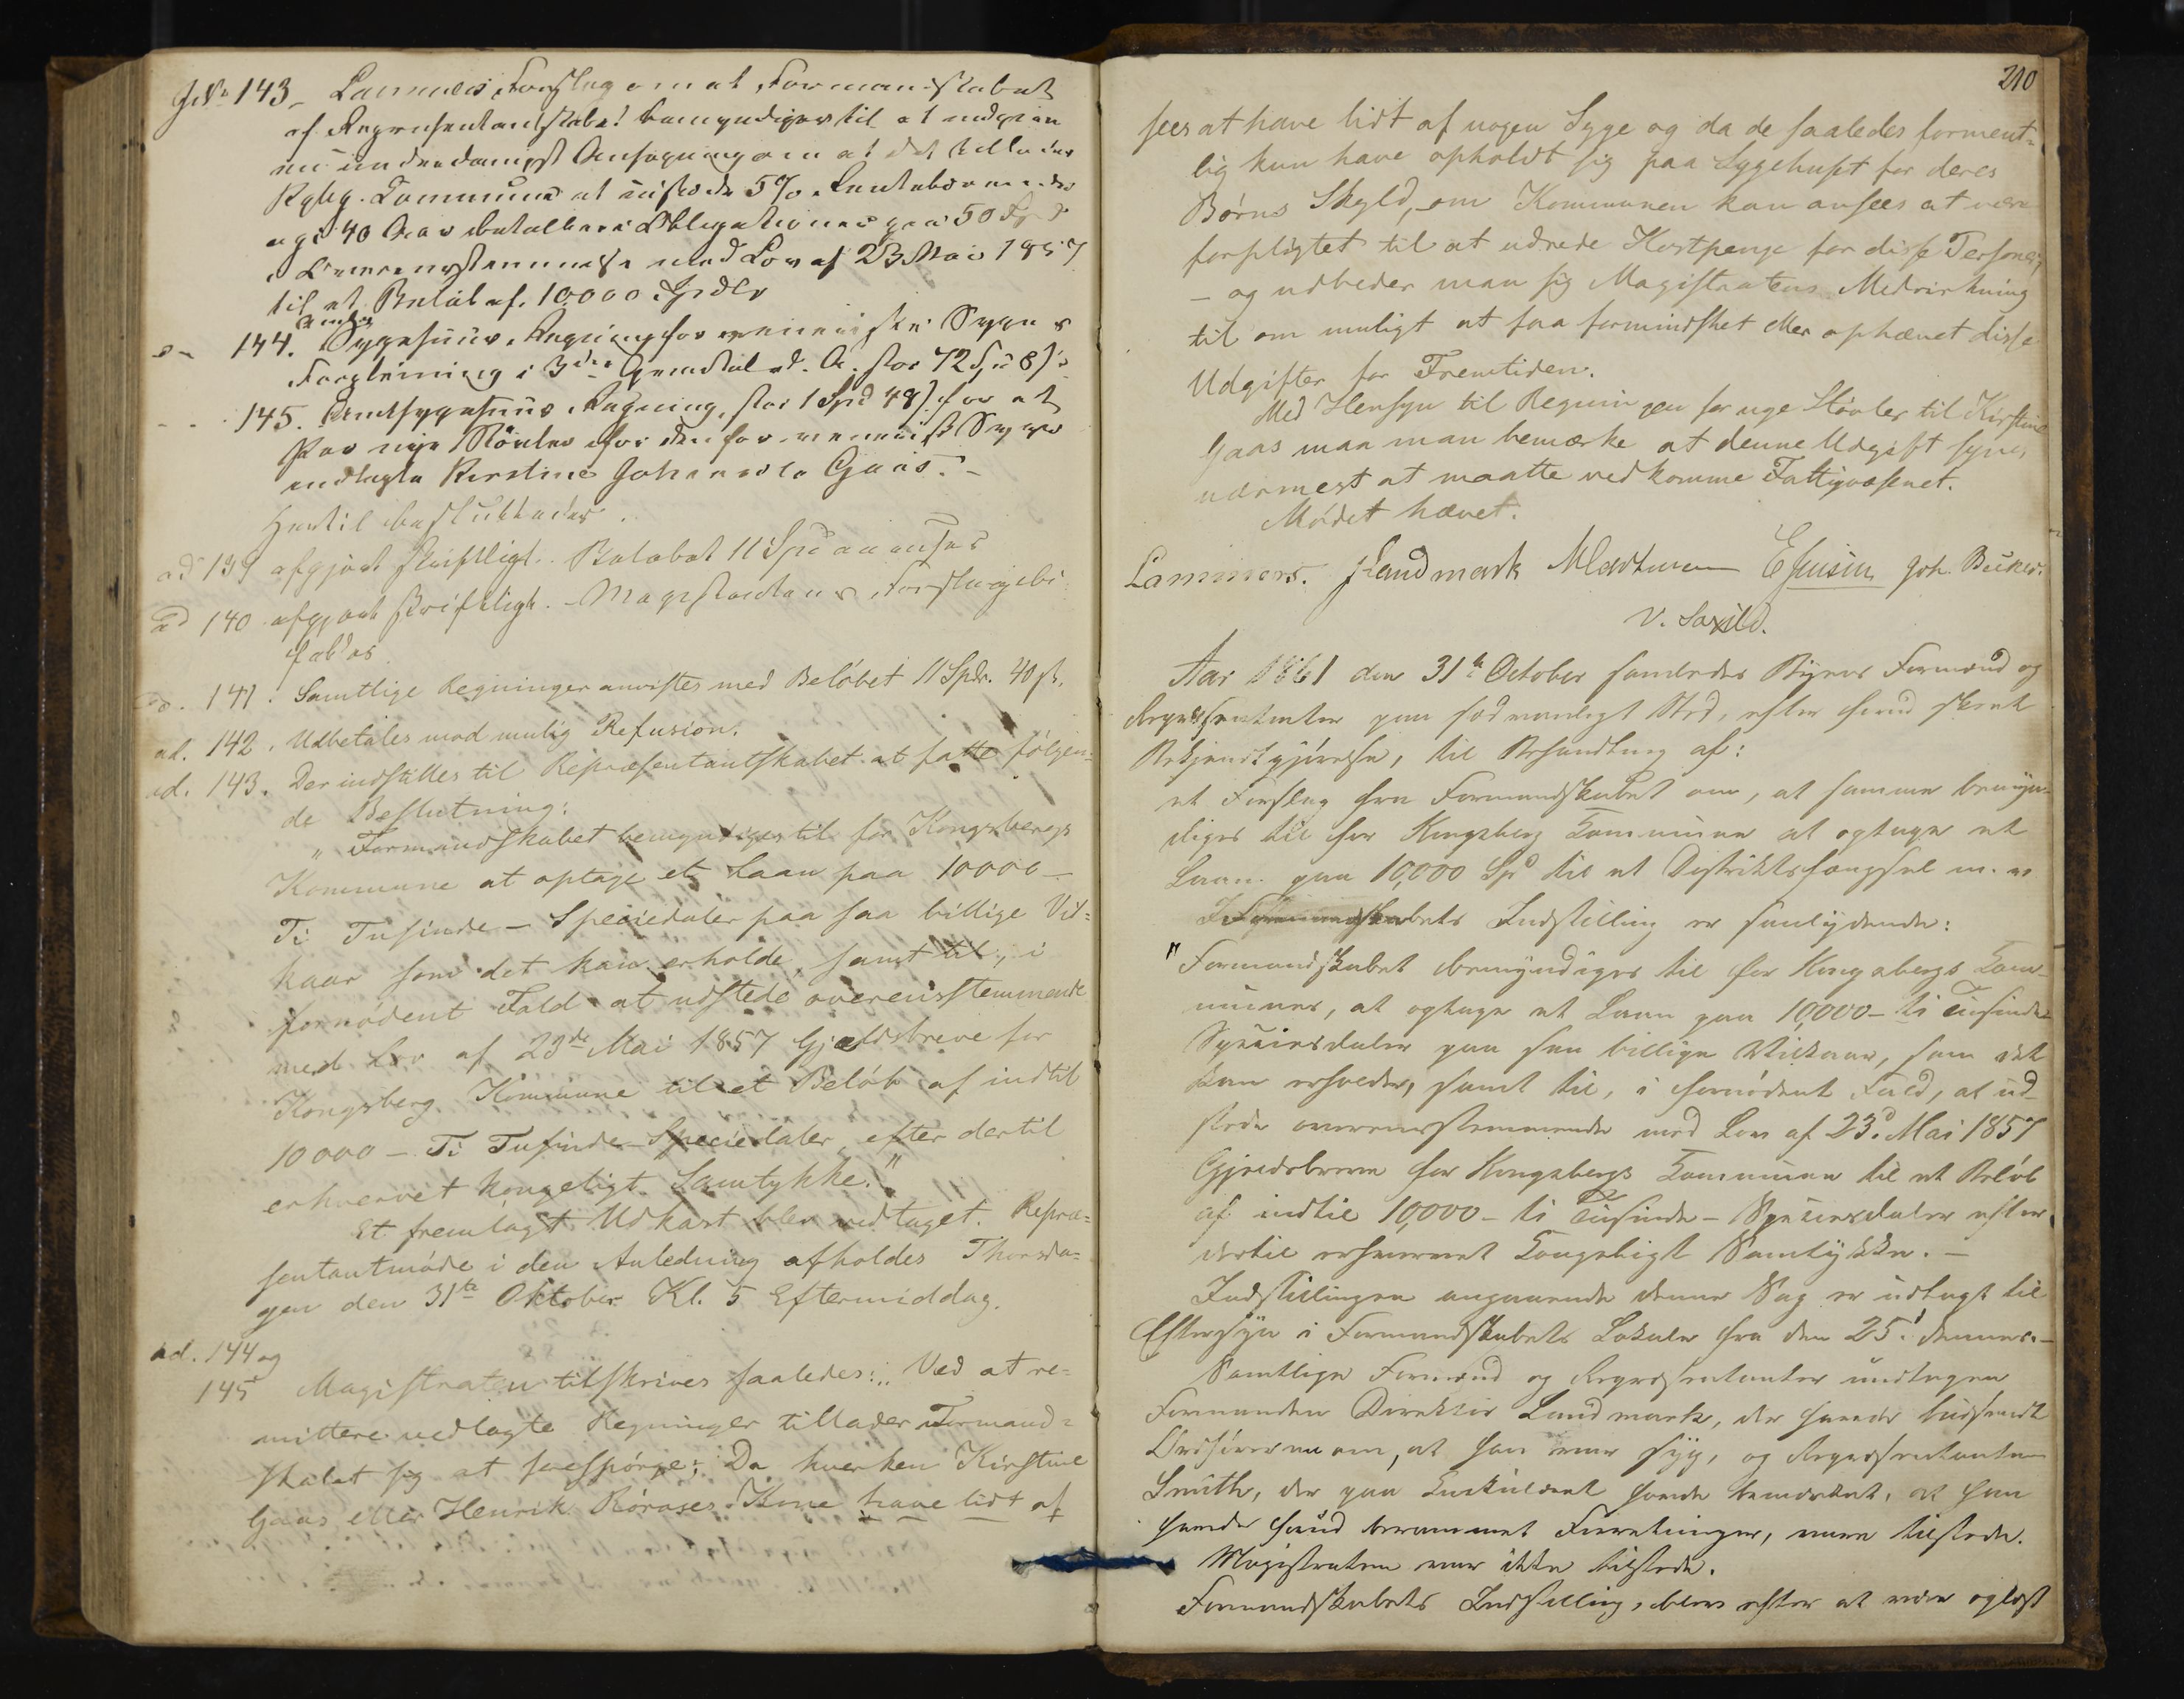 JNo 143. Lammers Forslag om at Formandskabet
af Repræsentantskabet bemyndiges til at indgive
en underdanigst Ansøgning om at det tillades
Kgbg. Commune at udstede 5% Rentebærende
og i 40 Aar betalbare Obligationer paa 50 Spd
i Overensstemmelse med Lov af 23 Mai 1857
til et Beløb af 10000 Spdlr
" 144. Amts Sygehuus Regning for veneriske Syges
Forpleining i 3die Qvartal d. A. stor 72 Spd 8 s
" 145. Amtsygehuus Regning, stor 1 Spd 48 s for et
Par nye Støvler for den for venerisk Syge
indlagte Kirstine Johannesd. Gaas. –
Hertil besluttedes.
ad 139 afgjort skriftligt. Beløbet 11 Spd anvises
ad 140 afgjort skriftligt. Magistratens Forslag bi-
faldes
ad. 141. Samtlige Regninger anvistes med Beløbet 11 Spdr. 40 sk.
ad. 142. Udbetales mod mulig Refusion.
ad. 143. Der indstilles til Repræsentantskabet at fatte følgen-
de Beslutning:
"Formandskabet bemyndiges til for Kongsbergs
Kommune at optage et Laan paa 10000 –
Ti Tusinde – Speciedaler paa saa billige Vil-
kaar som det kan erholde, samt til, i
fornødent Fald at udstede overensstemmende
med Lov af 23de Mai 1857 Gjældsbreve for
Kongsberg Kommune til et Beløb af indtil
10000 – Ti Tusinde – Speciedaler, efter dertil
erhvervet kongeligt Samtykke."
Et fremlagt Udkast blev vedtaget. Repræ-
sentantmøde i den Anledning afholdes Thorsda-
gen den 31te Oktober Kl. 5 Eftermiddag.
ad. 144 og
145 Magistraten tilskrives saaledes: "Ved at re-
mittere vedlagte Regninger tillader Formand-
skabet sig at forespørge: Da hverken Kirstine
Gaas eller Henrik Røraases Kone have lidt af
210
sees at have lidt af nogen Syge og da de saaledes forment-
lig kun have opholdt sig paa Sygehuset for deres
Børns Skyld, om Kommunen kan ansees at være
forpligtet til at udrede Kostpenge for disse Personer,
– og udbeder man sig Magistratens Medvirkning
til om muligt at faa formindsket eller ophævet disse
Udgifter for Fremtiden.
Med Hensyn til Regningen for nye Støvler til Kirstine
Gaas maa man bemærke at denne Udgift synes
nærmest at maatte vedkomme Fattigvæsenet.
Mødet hævet.
Lammers. Landmark Joh. Becker.
V. Saxild.
Aar 1861 den 31te October samledes Byens Formænd og
Repræsentanter paa sædvanligt Sted, efter forud skeet
Bekjendtgjørelse, til Behandling af:
et Forslag fra Formandskabet om, at samme bemyn-
diges til for Kongsberg Commune at optage et
Laan paa 10,000 Spd til et Distriktsfængsel m. v.
Formandskabets Indstilling er saalydende:
"Formandskabet bemyndiges til for Kongsbergs Com-
mune, at optage et Laan paa 10,000 – ti Tusinde
Speciesdaler paa saa billige Vilkaar, som det
kan erholdes, samt til, i fornødent Fald, at ud-
stede overensstemmende med Lov af 23d Mai 1857
Gjældsbreve for Kongsbergs Commune til et Beløb
af indtil 10,000 – ti Tusinde – Speciesdaler efter
dertil erhvervet Kongeligt Samtykke. –
Indstillingen angaaende denne Sag er udlagt til
Eftersyn i Formandskabets Lokale fra den 25d dennes. –
Samtlige Formænd og Repræsentanter undtagen
Formanden Direktør Landmark, der havde tilsendt
Ordføreren om, at han var syg, og Repræsentanten
Smith, der paa havde bemærket, at han
havde forud berammet Forretninger, vare tilstede.
Magistraten var ikke tilstede.
Formandskabets Indstilling, blev efter at være oplæst